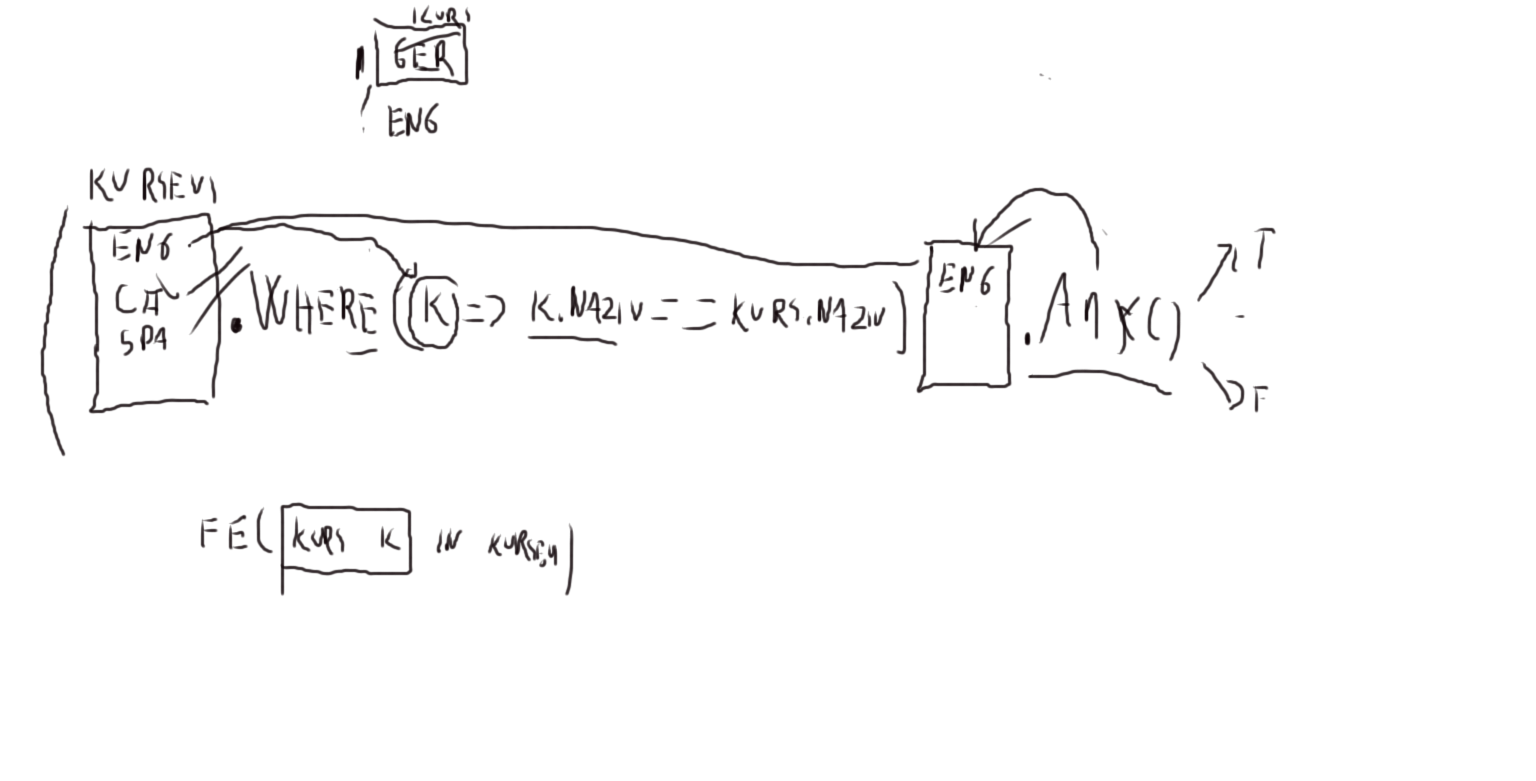 KURS
GER
ENG
KURSEVI
ENG
SPA
.WHERE(K => K.NAZIV == KURS.NAZIV)
ENG
.Any()
T
F
FE(KURS K IN KURSEVI)